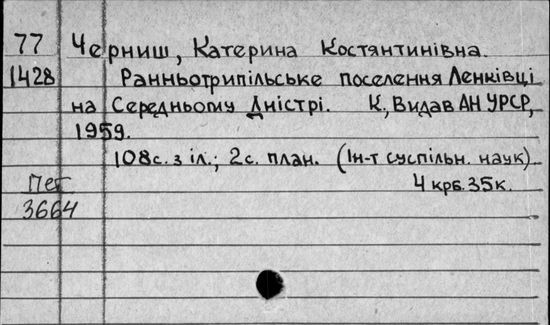 77 Черниш, Катерина Костянтинівна.
1428 Ранньотрипільське поселення Ленківці
на Середньому Дністрі. К, Видав АН УРСР,
1959.
108с. з іл.; 2с. план. (Ін-т суспільн. наук)
Пет 4 крб. 35к.
3664